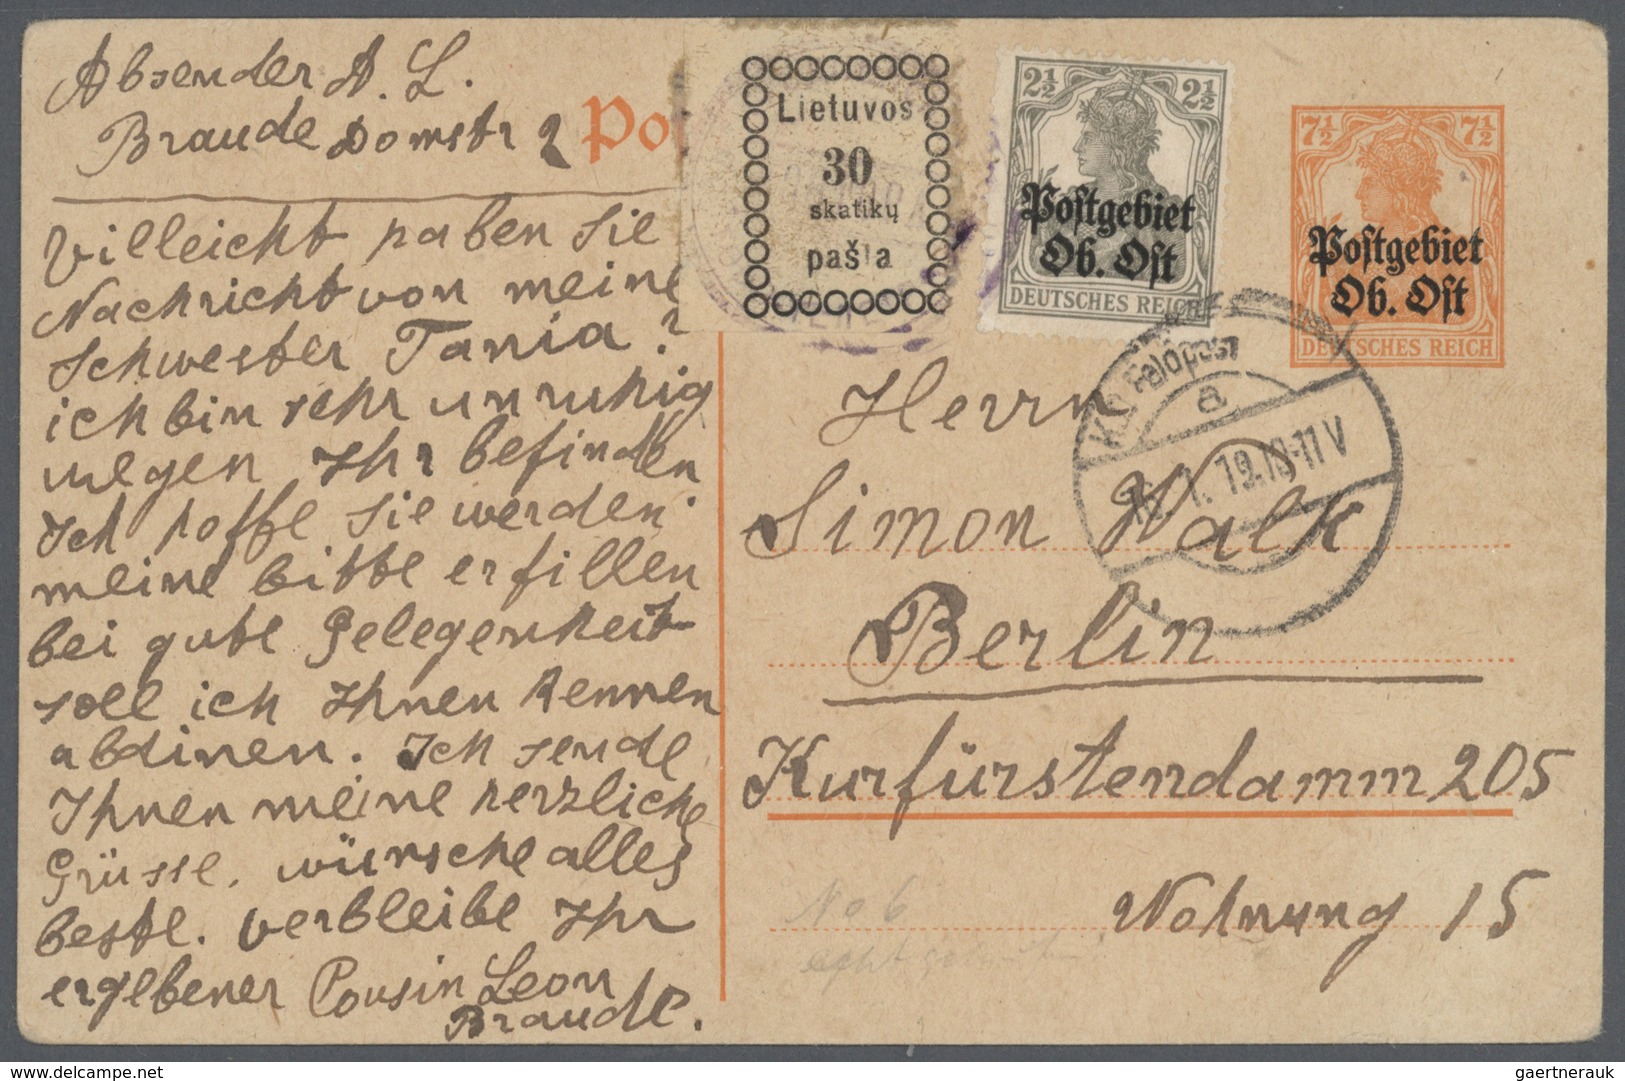 Absender A. L.
Braude Domstr 2
Villeicht haben Sie
Nachricht von meine
Schwester Tania?
ich bin sehr unruhig
wegen Ihr befinden
Ich hoffe Sie werden
meine bitte erfillen
bei gute Gelegenheit
soll ich Ihnen kennen
abdinen. Ich sende
Ihnen meine herzliche
Grüsse. wünsche alles
beste. verbleibe Ihr
ergebener Cousin Leon
Braude.
Po
Lietuvos
30
skatikų
pašta
2½ 2½
Postgebiet
Ob. Ost
DEUTSCHES REICH
7½ 7½
Postgebiet
Ob. Ost
DEUTSCHES REICH
Feldpost
a
1. 19. 10-11 V
Herrn
Simon Walk
Berlin
Kurfürstendamm 205
Wohnung 15
No 6
www.delcampe.net
gaertnerauk